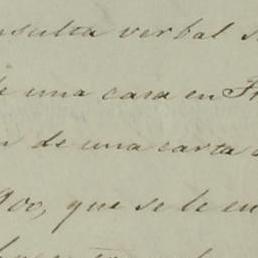 nsulta verbal
e una casa en
n de una carta
900, que se le en